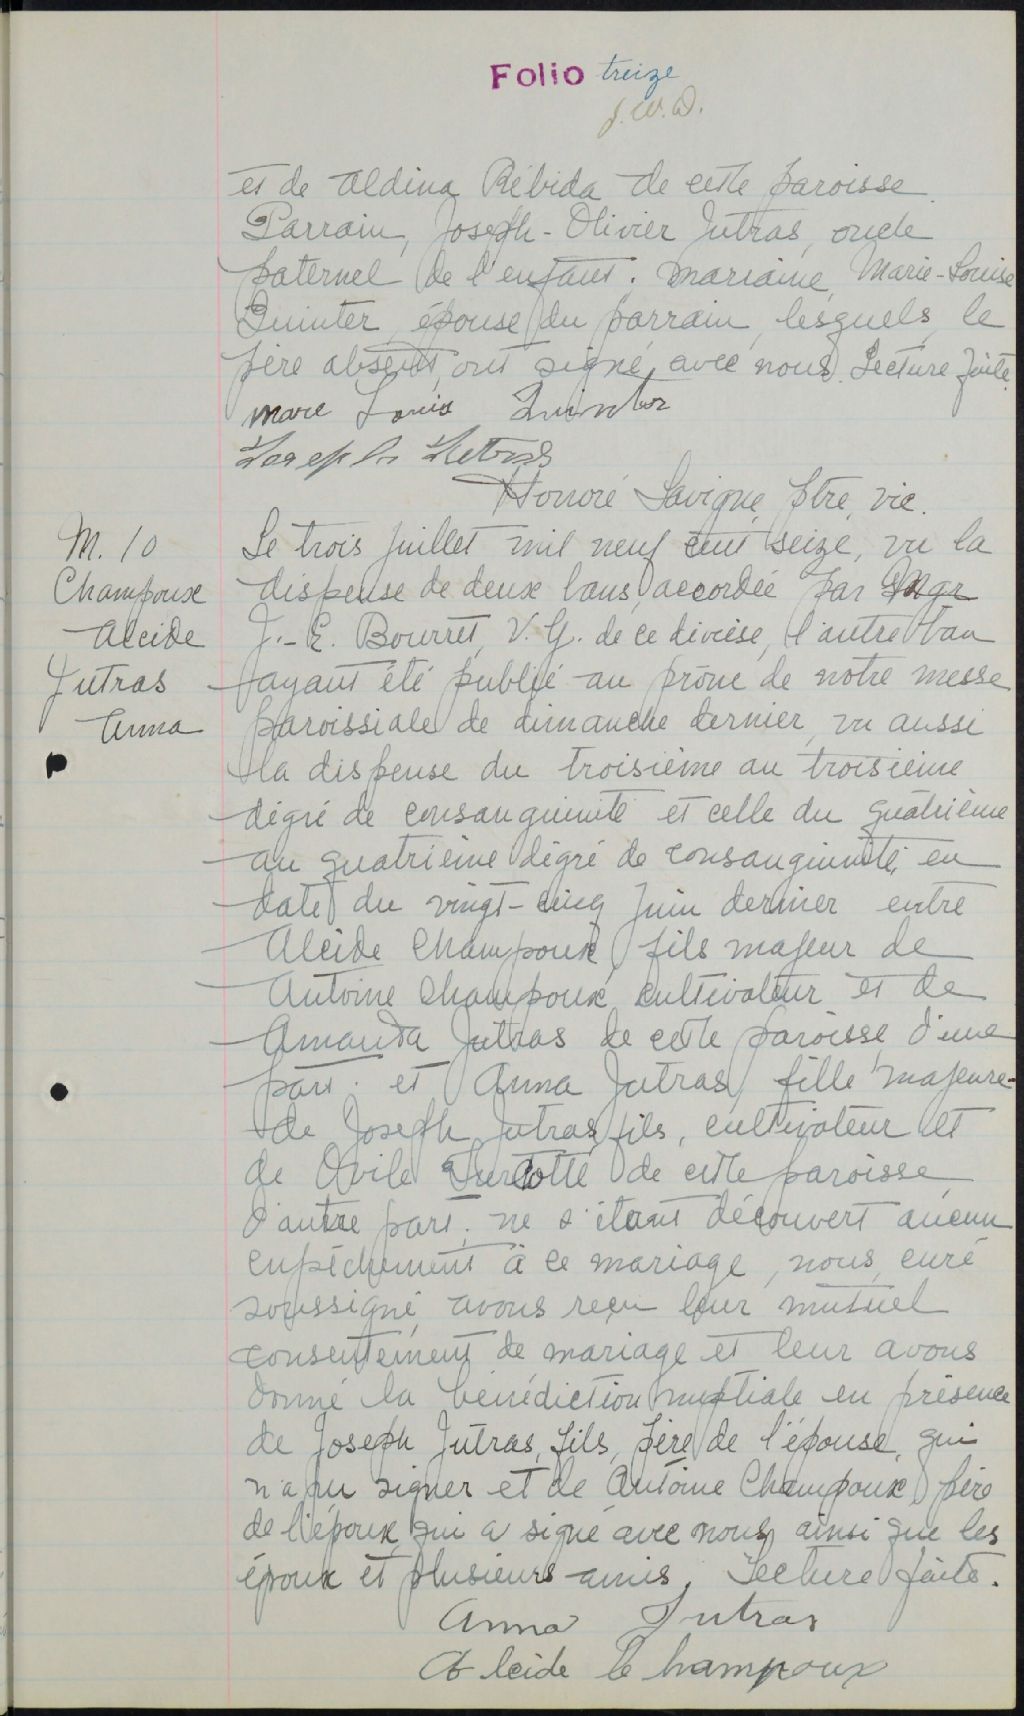 Folio treize
J.W.D.
et de Aldina Rébida de cette paroisse.
Parrain, Joseph-Olivier Jutras, oncle
paternel de l'enfant; marraine, Marie-Louise
Quinter, épouse du parrain, lesquels, le
père absent, ont signé avec nous. Lecture faite.
Marie Louis Quinter
Joseph Jutras
Honoré Lavigne, ptre, vic.
M. 10
Champoux
Alcide
Jutras
Anna
Le trois juillet mil neuf cent seize, vu la
dispense de deux bans accordée par Mgr
J.-E. Bourret, V.G. de ce diocèse, l'autre ban
ayant été publié au prône de notre messe
paroissiale de dimanche dernier, vu aussi
la dispense du troisième au troisième
dégré de consanguinité et celle du quatrième
au quatrième dégré de consanguinité, en
date du vingt-cinq juin dernier entre
Alcide Champoux, fils majeur de
Antoine Champoux, cultivateur et de
Amanda Jutras de cette paroisse, d'une
part; et Anna Jutras, fille majeure
de Joseph Jutras, fils, cultivateur et
de Ovile Turcotte de cette paroisse,
d'autre part; ne s'étant découvert aucun
empêchement à ce mariage, nous, curé
soussigné, avons reçu leur mutuel
consentement de mariage et leur avons
donné la bénédiction nuptiale en présence
de Joseph Jutras, fils, père de l'épouse, qui
n'a pu signer et de Antoine Champoux, père
de l'époux, qui a signé avec nous, ainsi que les
époux et plusieurs amis. Lecture faite.
Anna Jutras
Alcide Champoux